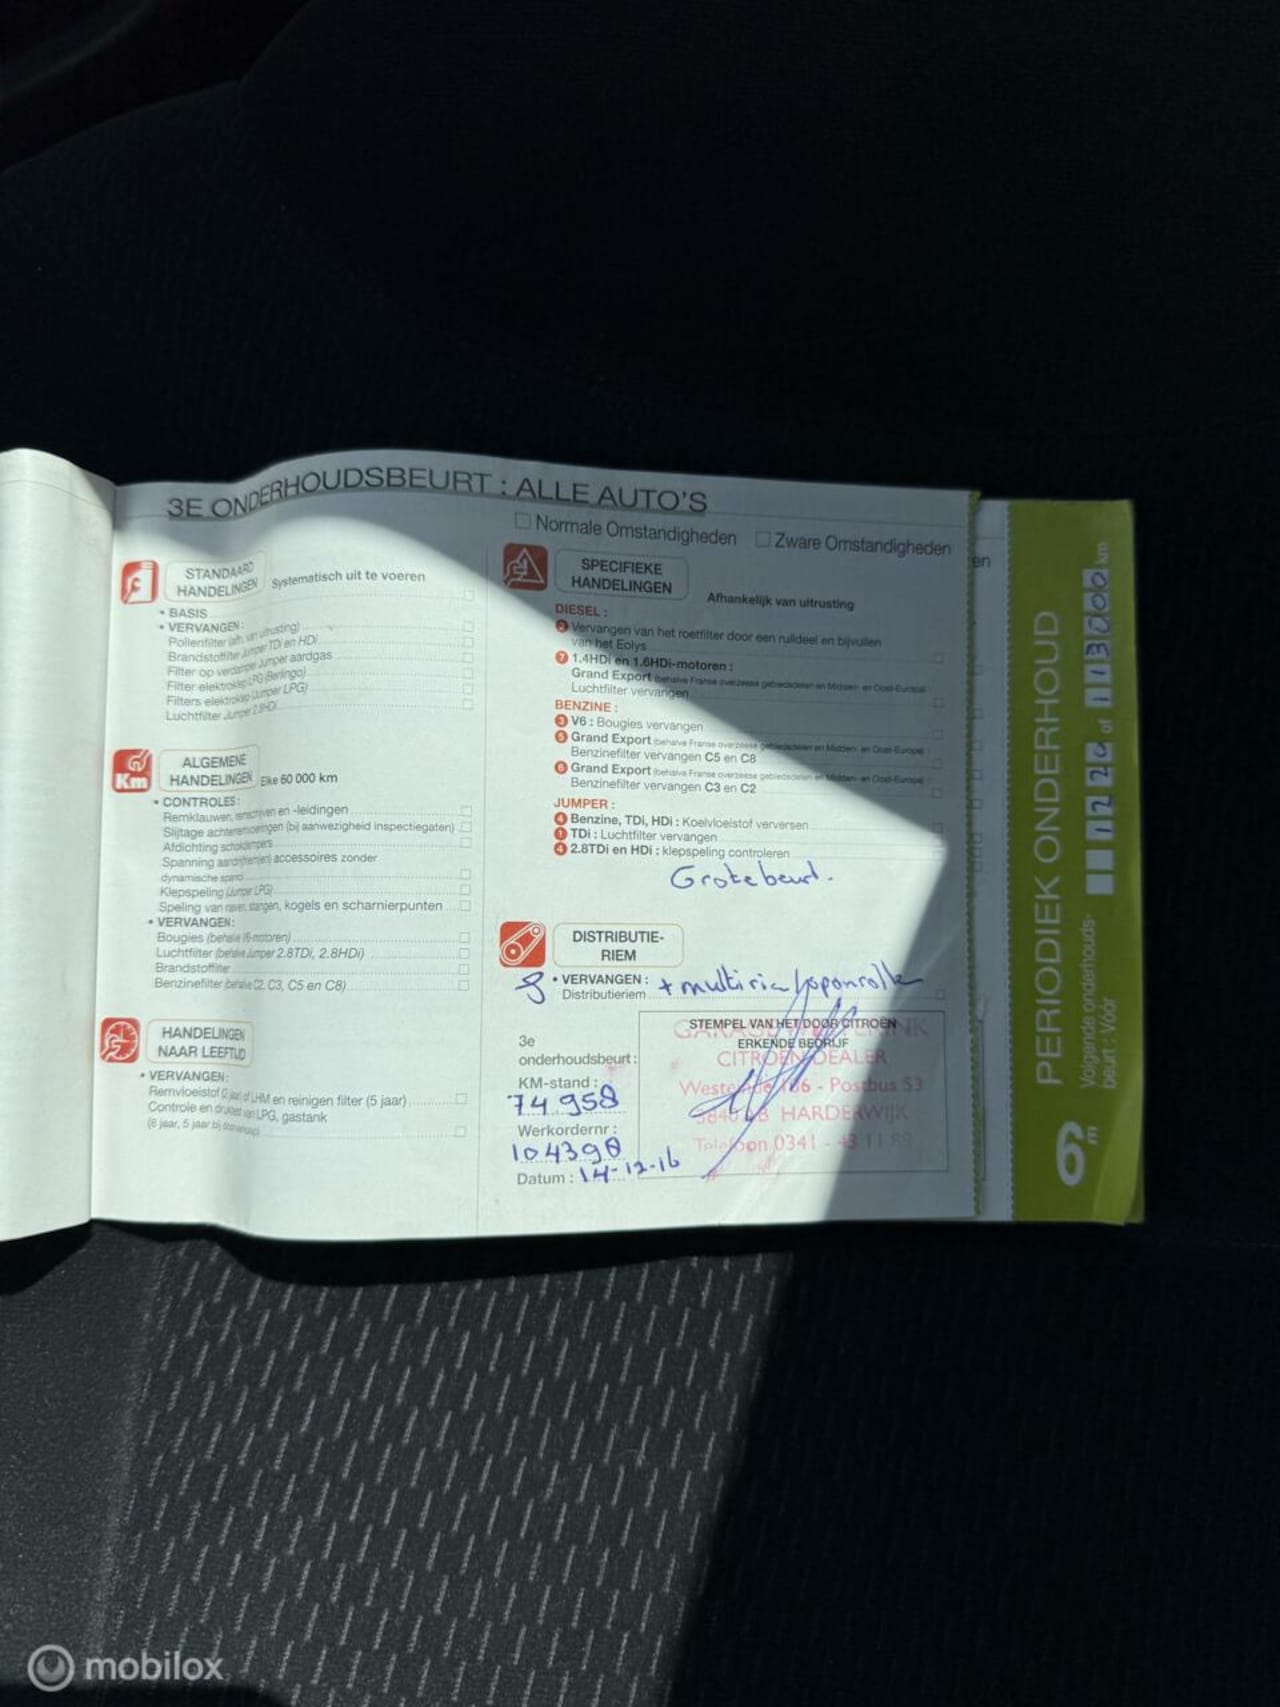 3E ONDERHOUDSBEURT : ALLE AUTO'S
Normale Omstandigheden
Zware Omstandigheden
STANDAARD
HANDELINGEN
Systematisch uit te voeren
• BASIS
• VERVANGEN:
Pollenfilter (afh. van uitrusting)
Brandstoffilter Jumper TDi en HDi
Filter op verdamper Jumper aardgas
Filter elektroklep LPG (Berlingo)
Filters elektroklep (Jumper LPG)
Luchtfilter Jumper 2.8HDi
Km
ALGEMENE
HANDELINGEN
Elke 60 000 km
• CONTROLES:
Remklauwen, remschijven en -leidingen
Slijtage achterremvoeringen (bij aanwezigheid inspectiegaten)
Afdichting schokdempers
Spanning aandrijfriem(en) accessoires zonder
dynamische spanrol
Klepspeling (Jumper LPG)
Speling van naven, stangen, kogels en scharnierpunten
• VERVANGEN:
Bougies (behalve V6-motoren)
Luchtfilter (behalve Jumper 2.8TDi, 2.8HDi)
Brandstoffilter
Benzinefilter (behalve C2, C3, C5 en C8)
HANDELINGEN
NAAR LEEFTIJD
• VERVANGEN:
Remvloeistof (2 jaar) of LHM en reinigen filter (5 jaar)
Controle en druktest van LPG, gastank
SPECIFIEKE
HANDELINGEN
Afhankelijk van uitrusting
DIESEL :
Vervangen van het roetfilter door een ruildeel en bijvullen
van het Eolys
7 1.4HDi en 1.6HDi-motoren :
Grand Export (behalve Franse overzeese gebiedsdelen en Midden- en Oost-Europa)
Luchtfilter vervangen
BENZINE :
3 V6 : Bougies vervangen
5 Grand Export (behalve Franse overzeese gebiedsdelen en Midden- en Oost-Europa)
Benzinefilter vervangen C5 en C8
6 Grand Export (behalve Franse overzeese gebiedsdelen en Midden- en Oost-Europa)
Benzinefilter vervangen C3 en C2
JUMPER :
4 Benzine, TDi, HDi : Koelvloeistof verversen
1 TDi : Luchtfilter vervangen
4 2.8TDi en HDi : klepspeling controleren
Grote beurt.
DISTRIBUTIE-
RIEM
• VERVANGEN :
Distributieriem
+ multiriem/spanrolle
STEMPEL VAN HET DOOR CITROËN
ERKENDE BEDRIJF
GARAGE
CITROËN DEALER
186 - Postbus 53
HARDERWIJK
Telefoon 0341 - 43 11 88
3e
onderhoudsbeurt :
KM-stand :
74.958
Werkordernr :
104390
Datum : 14-12-16
en
PERIODIEK ONDERHOUD
Volgende onderhouds-
beurt : Vóór
1224 of 113000 km
6
m
mobilox